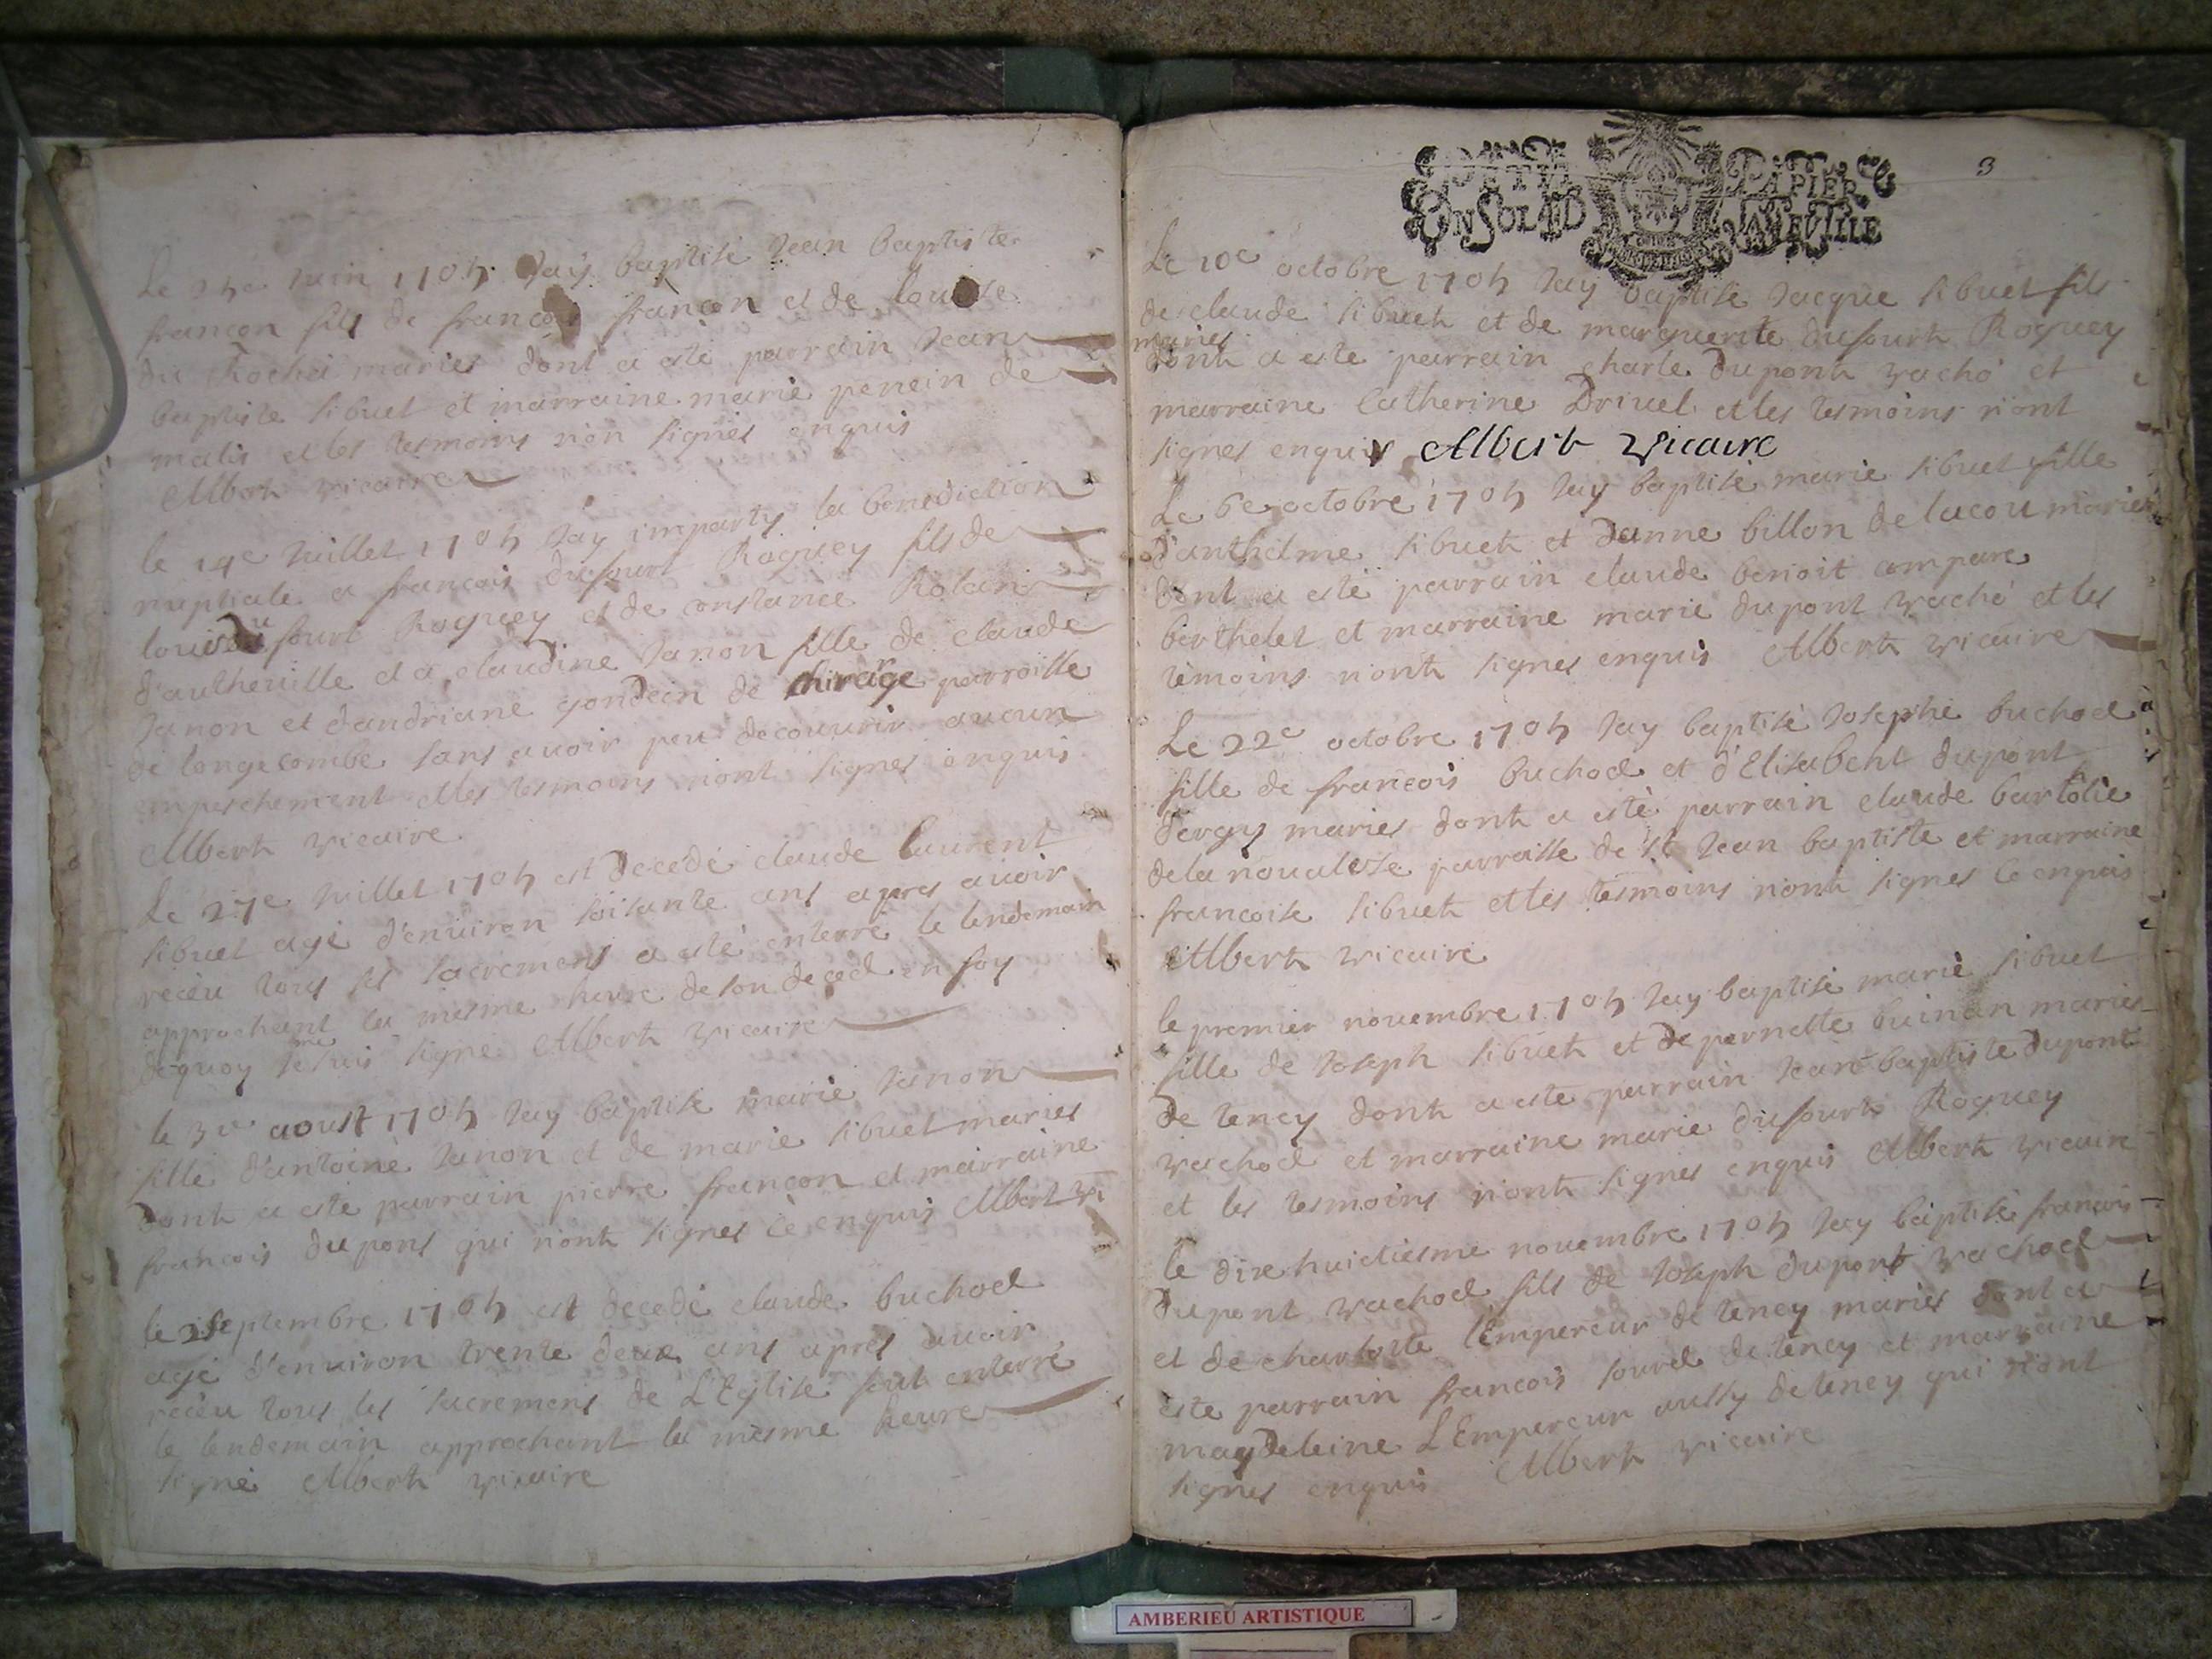 Le juin 1705 Jay baptisé Jean baptiste
françon fils de françois françon et de louise
du Rochet mariés dont a esté parrain Jean
baptiste sibuet et marraine marie de
et les tesmoins non signés enquis
Albert vicaire
le 14e Juillet 1705 Jay imparty la benediction
nuptiale a francois dufourt Roguey fils de
louis dufourt Roguey et de constance
d'autheville et a claudine Janon fille de claude
Janon et d'andriane gondein de parroisse
de longecombe sans avoir peu decouvrir aucun
empeschement et les tesmoins nont signés enquis
Albert vicaire
Le 27e Juillet 1705 est decedé claude laurent
sibuet agé d'environ soisante ans apres avoir
receu tous ses sacremens a esté enterré le lendemain
approchant la mesme heure de son deced en foy
dequoy je me suis signe Albert vicaire
le 3e aoust 1705 Jay baptisé marie Janon
fille d'antoine Janon et de marie sibuet mariés
dont a esté parrain pierre françon et marraine
francois dupont qui nont signés ce enquis Albert vi
le 2 septembre 1705 est decedé claude buchod
agé d'environ trente deux ans apres avoir
receu tous les sacremens de L'Eglise fut enterré
le lendemain approchant la mesme heure
signé Albert vicaire
PAPIER
3
Le 10e octobre 1705 Jay baptisé Jacque sibuet fils
de claude sibuet et de marguerite dufourt Roguey
mariés
dont a esté parrain charle dupont vacho et
marraine Catherine Drivet et les tesmoins nont
signés enquis Albert Vicaire
Le 6e octobre 1705 Jay baptisé marie sibuet fille
d'anthelme sibuet et d'anne billon de lacou mariés
dont a esté parrain claude benoit
berthelet et marraine marie dupont vacho et les
témoins nont signés enquis Albert vicaire
Le 22e octobre 1705 Jay baptisé Josephe buchod
fille de francois buchod et d'Elisabeht dupont
d'evoges mariés dont a esté parrain claude
de la parroisse de st Jean baptiste et marraine
francoise sibuet et les tesmoins nont signés ce enquis
Albert vicaire
le premier novembre 1705 Jay baptisé marie sibuet
fille de Joseph sibuet et de pernette buinan mariés
de teney dont a esté parrain Jean baptiste dupont
vachod et marraine marie dufourt Roguey
et les tesmoins nont signés enquis Albert vicaire
le dixe huictiesme novembre 1705 Jay baptisé francois
dupont vachod fils de Joseph dupont vachod
et de charlotte l'Empereur de teney mariés dont a
esté parrain francois de teney et marraine
magdeleine L'Empereur aussy de teney qui nont
signés enquis Albert vicaire
AMBERIEU ARTISTIQUE